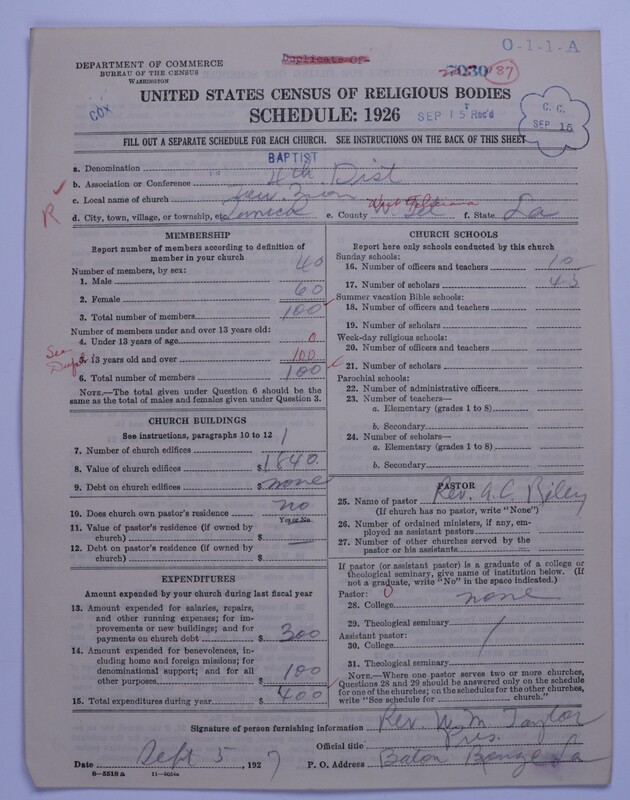 O-1-1-A
Duplicate of
DEPARTMENT OF COMMERCE
BUREAU OF THE CENSUS
WASHINGTON
87
COX
UNITED STATES CENSUS OF RELIGIOUS BODIES
SCHEDULE: 1926
SEP 15 Rec'd
C. C.
SEP 15
FILL OUT A SEPARATE SCHEDULE FOR EACH CHURCH. SEE INSTRUCTIONS ON THE BACK OF THIS SHEET
a. Denomination BAPTIST
b. Association or Conference 4th Dist
c. Local name of church New Zion
R
West Feliciana
d. City, town, village, or township, etc. e. County W. Fel f. State La
MEMBERSHIP
Report number of members according to definition of member in your church
Number of members, by sex:
1. Male 40
2. Female 60
3. Total number of members 100
Number of members under and over 13 years old:
4. Under 13 years of age 0
See
5. 13 years old and over 100
6. Total number of members 100
NOTE.—The total given under Question 6 should be the same as the total of males and females given under Question 3.
CHURCH BUILDINGS
See instructions, paragraphs 10 to 12
7. Number of church edifices 1
8. Value of church edifices $1840.
9. Debt on church edifices $none
10. Does church own pastor's residence? no
Yes or No
11. Value of pastor's residence (if owned by church) $ —
12. Debt on pastor's residence (if owned by church) $
EXPENDITURES
Amount expended by your church during last fiscal year
13. Amount expended for salaries, repairs, and other running expenses; for improvements or new buildings; and for payments on church debt $ 300
14. Amount expended for benevolences, including home and foreign missions; for denominational support; and for all other purposes $ 100
15. Total expenditures during year $ 400
CHURCH SCHOOLS
Report here only schools conducted by this church
Sunday schools:
16. Number of officers and teachers 10
17. Number of scholars 45
Summer vacation Bible schools:
18. Number of officers and teachers
19. Number of scholars
Week-day religious schools:
20. Number of officers and teachers
21. Number of scholars
Parochial schools:
22. Number of administrative officers
23. Number of teachers—
a. Elementary (grades 1 to 8)
b. Secondary
24. Number of scholars—
a. Elementary (grades 1 to 8)
b. Secondary
PASTOR
25. Name of pastor Rev. A.C. Riley
(If church has no pastor, write "None")
26. Number of ordained ministers, if any, employed as assistant pastors
27. Number of other churches served by the pastor or his assistants
If pastor (or assistant pastor) is a graduate of a college or theological seminary, give name of institution below. (If not a graduate, write "No" in the space indicated.)
Pastor: 0
28. College none
29. Theological seminary
Assistant pastor:
30. College
31. Theological seminary
NOTE.—Where one pastor serves two or more churches, Questions 28 and 29 should be answered only on the schedule for one of the churches; on the schedules for the other churches, write "See schedule for church."
Signature of person furnishing information Rev. W. M. Taylor
Official title Pres.
Date Sept 5, 1927 P. O. Address Baton Rouge La
8-5518a 11-9054a